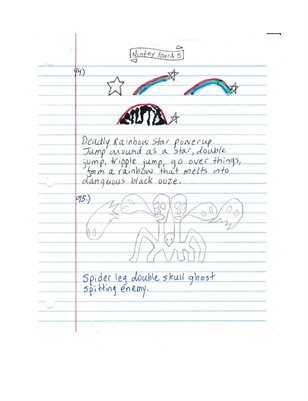 Winter Touch 5
94)
Deadly Rainbow Star powerup.
Jump around as a star, double
jump, tripple jump, go over things,
form a rainbow that melts into
danguous black ooze.
95.)
Spider leg double skull ghost
spitting enemy.